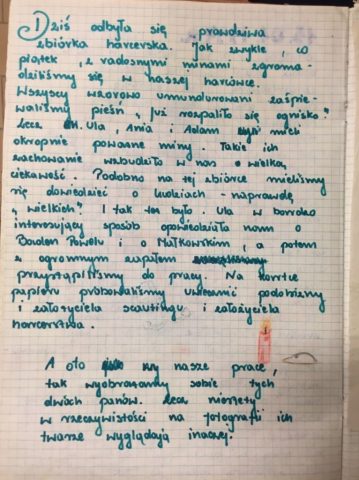 Dziś odbyła się prawdziwa
zbiórka harcerska. Jak zwykle, co
piątek, z radosnymi minami zgroma-
dziliśmy się w naszej harcówce.
Wszyscy wzorowo umundurowani zaśpie-
waliśmy pieśń „Już rozpaliło się ognisko".
Lecz dh. Ula, Ania i Adam mieli
okropnie poważne miny. Takie ich
zachowanie wzbudziło w nas wielką
ciekawość. Podobno na tej zbiórce mieliśmy
się dowiedzieć o ludziach - naprawdę
„wielkich". I tak też było. Ula w bardzo
interesujący sposób opowiedziała nam o
Baden Powelu i o Małkowskim, a potem
z ogromnym zapałem
przystąpiliśmy do pracy. Na kartce
papieru próbowaliśmy uwiecznić podobizny
i założyciela scautingu i założyciela
harcerstwa.
A oto nasze prace,
tak wyobrażamy sobie tych
dwóch panów. Lecz niestety
w rzeczywistości na fotografii ich
twarze wyglądają inaczej.